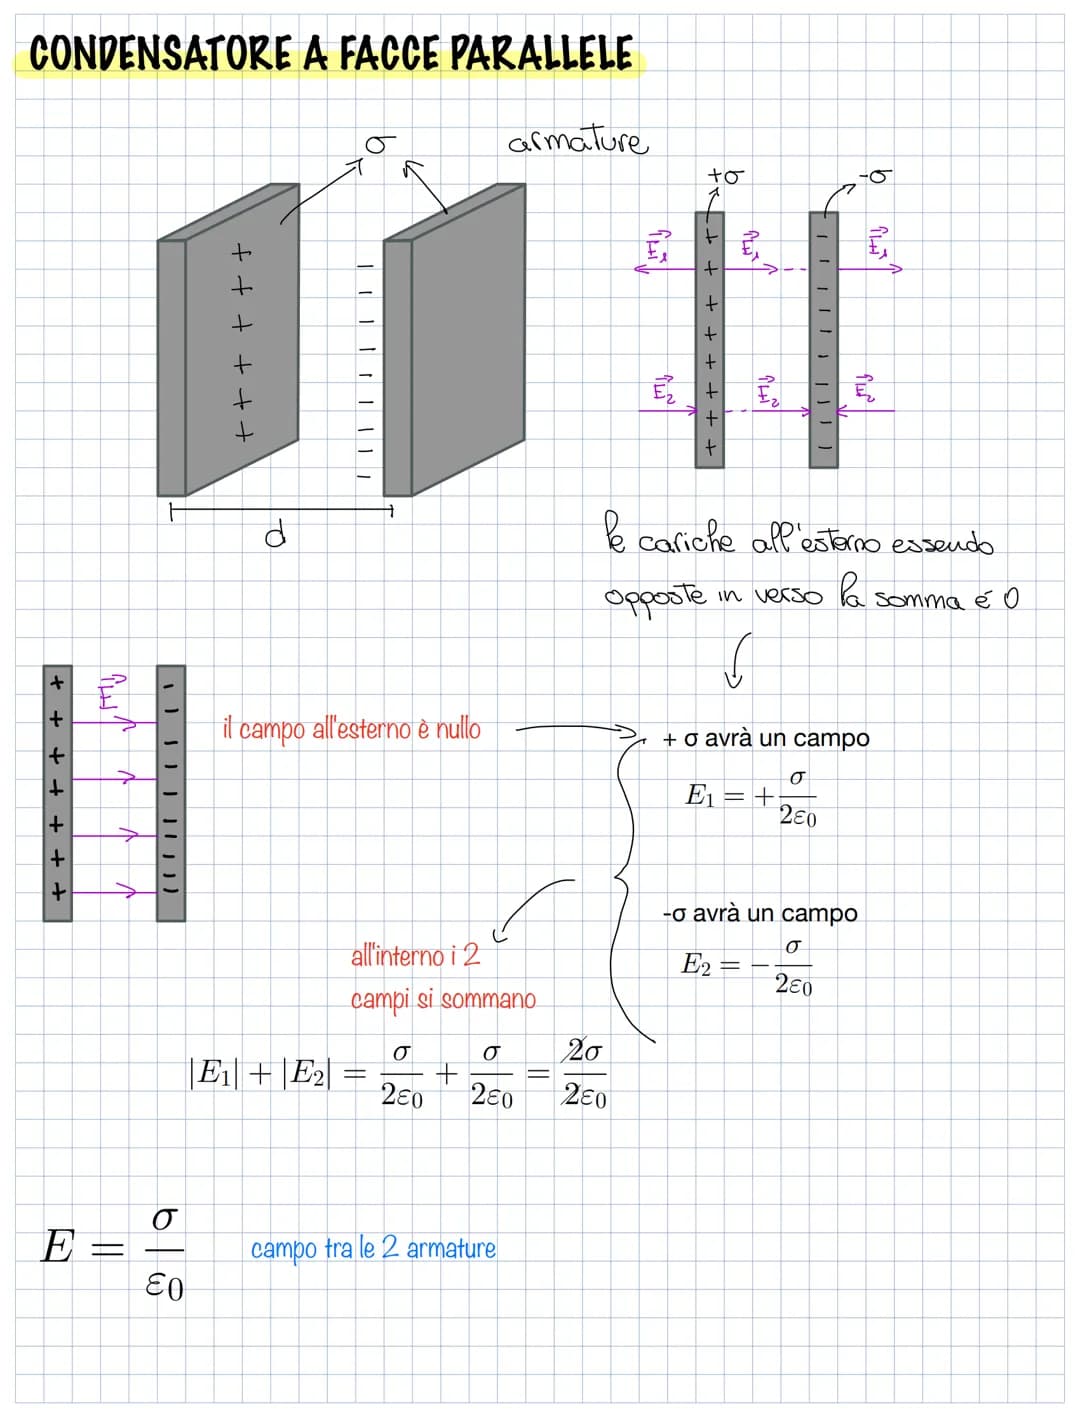 CONDENSATORE A FACCE PARALLELE
σ
armature
+σ
-σ
+ + + + + +
- - - - - - - - - -
E⃗₁ E⃗₁ E⃗₁
E⃗₂ E⃗₂ E⃗₂
+ + + + + + + +
- - - - - - - - - -
d
le cariche all'esterno essendo
opposte in verso la somma é 0
E⃗
+ + + + + + +
- - - - - - - - -
il campo all'esterno è nullo
+ σ avrà un campo
E₁ = + σ/2ε₀
-σ avrà un campo
E₂ = - σ/2ε₀
all'interno i 2
campi si sommano
|E₁| + |E₂| = σ/2ε₀ + σ/2ε₀ = 2σ/2ε₀
E = σ/ε₀
campo tra le 2 armature